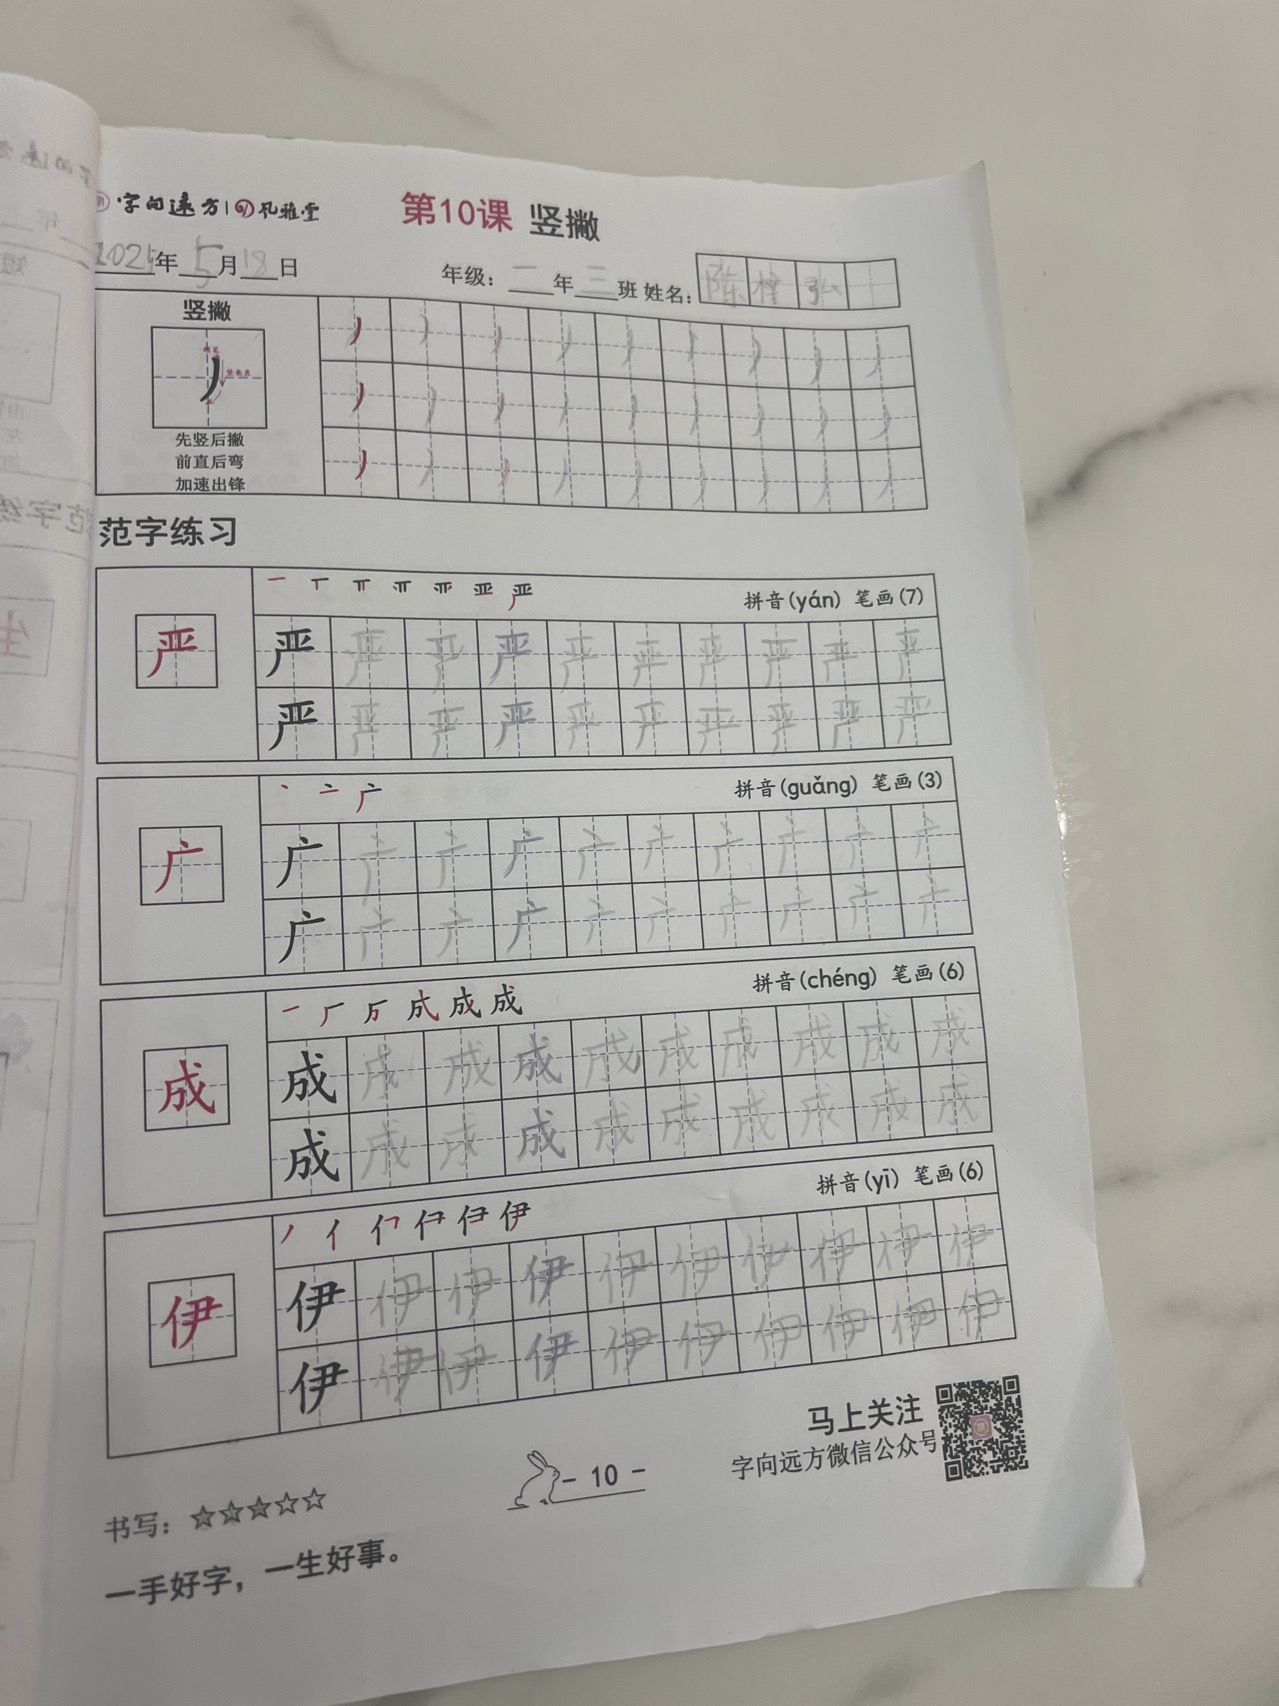 字向远方 孔雅堂 第10课 竖撇
2025年 5月18日 年级：一年三班 姓名：陈 弘
竖撇
先竖后撇
前直后弯
加速出锋
范字练习
拼音(yán) 笔画(7)
严 严 严 严 严 严 严 严 严 严 严
严 严 严 严 严 严 严 严 严 严
拼音(guǎng) 笔画(3)
广 广 广 广 广 广 广 广 广 广 广
广 广 广 广 广 广 广 广 广 广
拼音(chéng) 笔画(6)
成 成 成 成 成 成 成 成 成 成 成
成 成 成 成 成 成 成 成 成 成
拼音(yī) 笔画(6)
伊 伊 伊 伊 伊 伊 伊 伊 伊 伊 伊
伊 伊 伊 伊 伊 伊 伊 伊 伊 伊
马上关注
字向远方微信公众号
- 10 -
书写：☆☆☆☆☆
一手好字，一生好事。